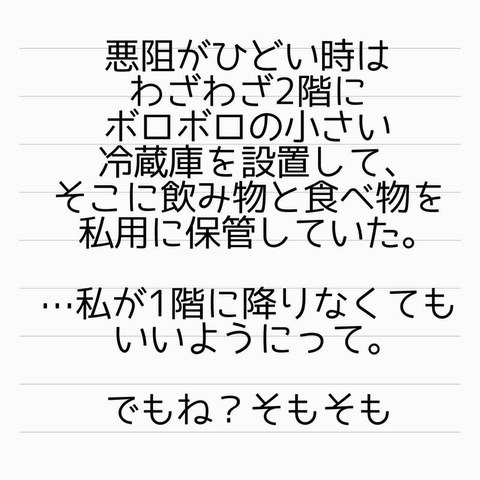 悪阻がひどい時は
わざわざ2階に
ボロボロの小さい
冷蔵庫を設置して、
そこに飲み物と食べ物を
私用に保管していた。
…私が1階に降りなくても
いいようにって。
でもね？そもそも